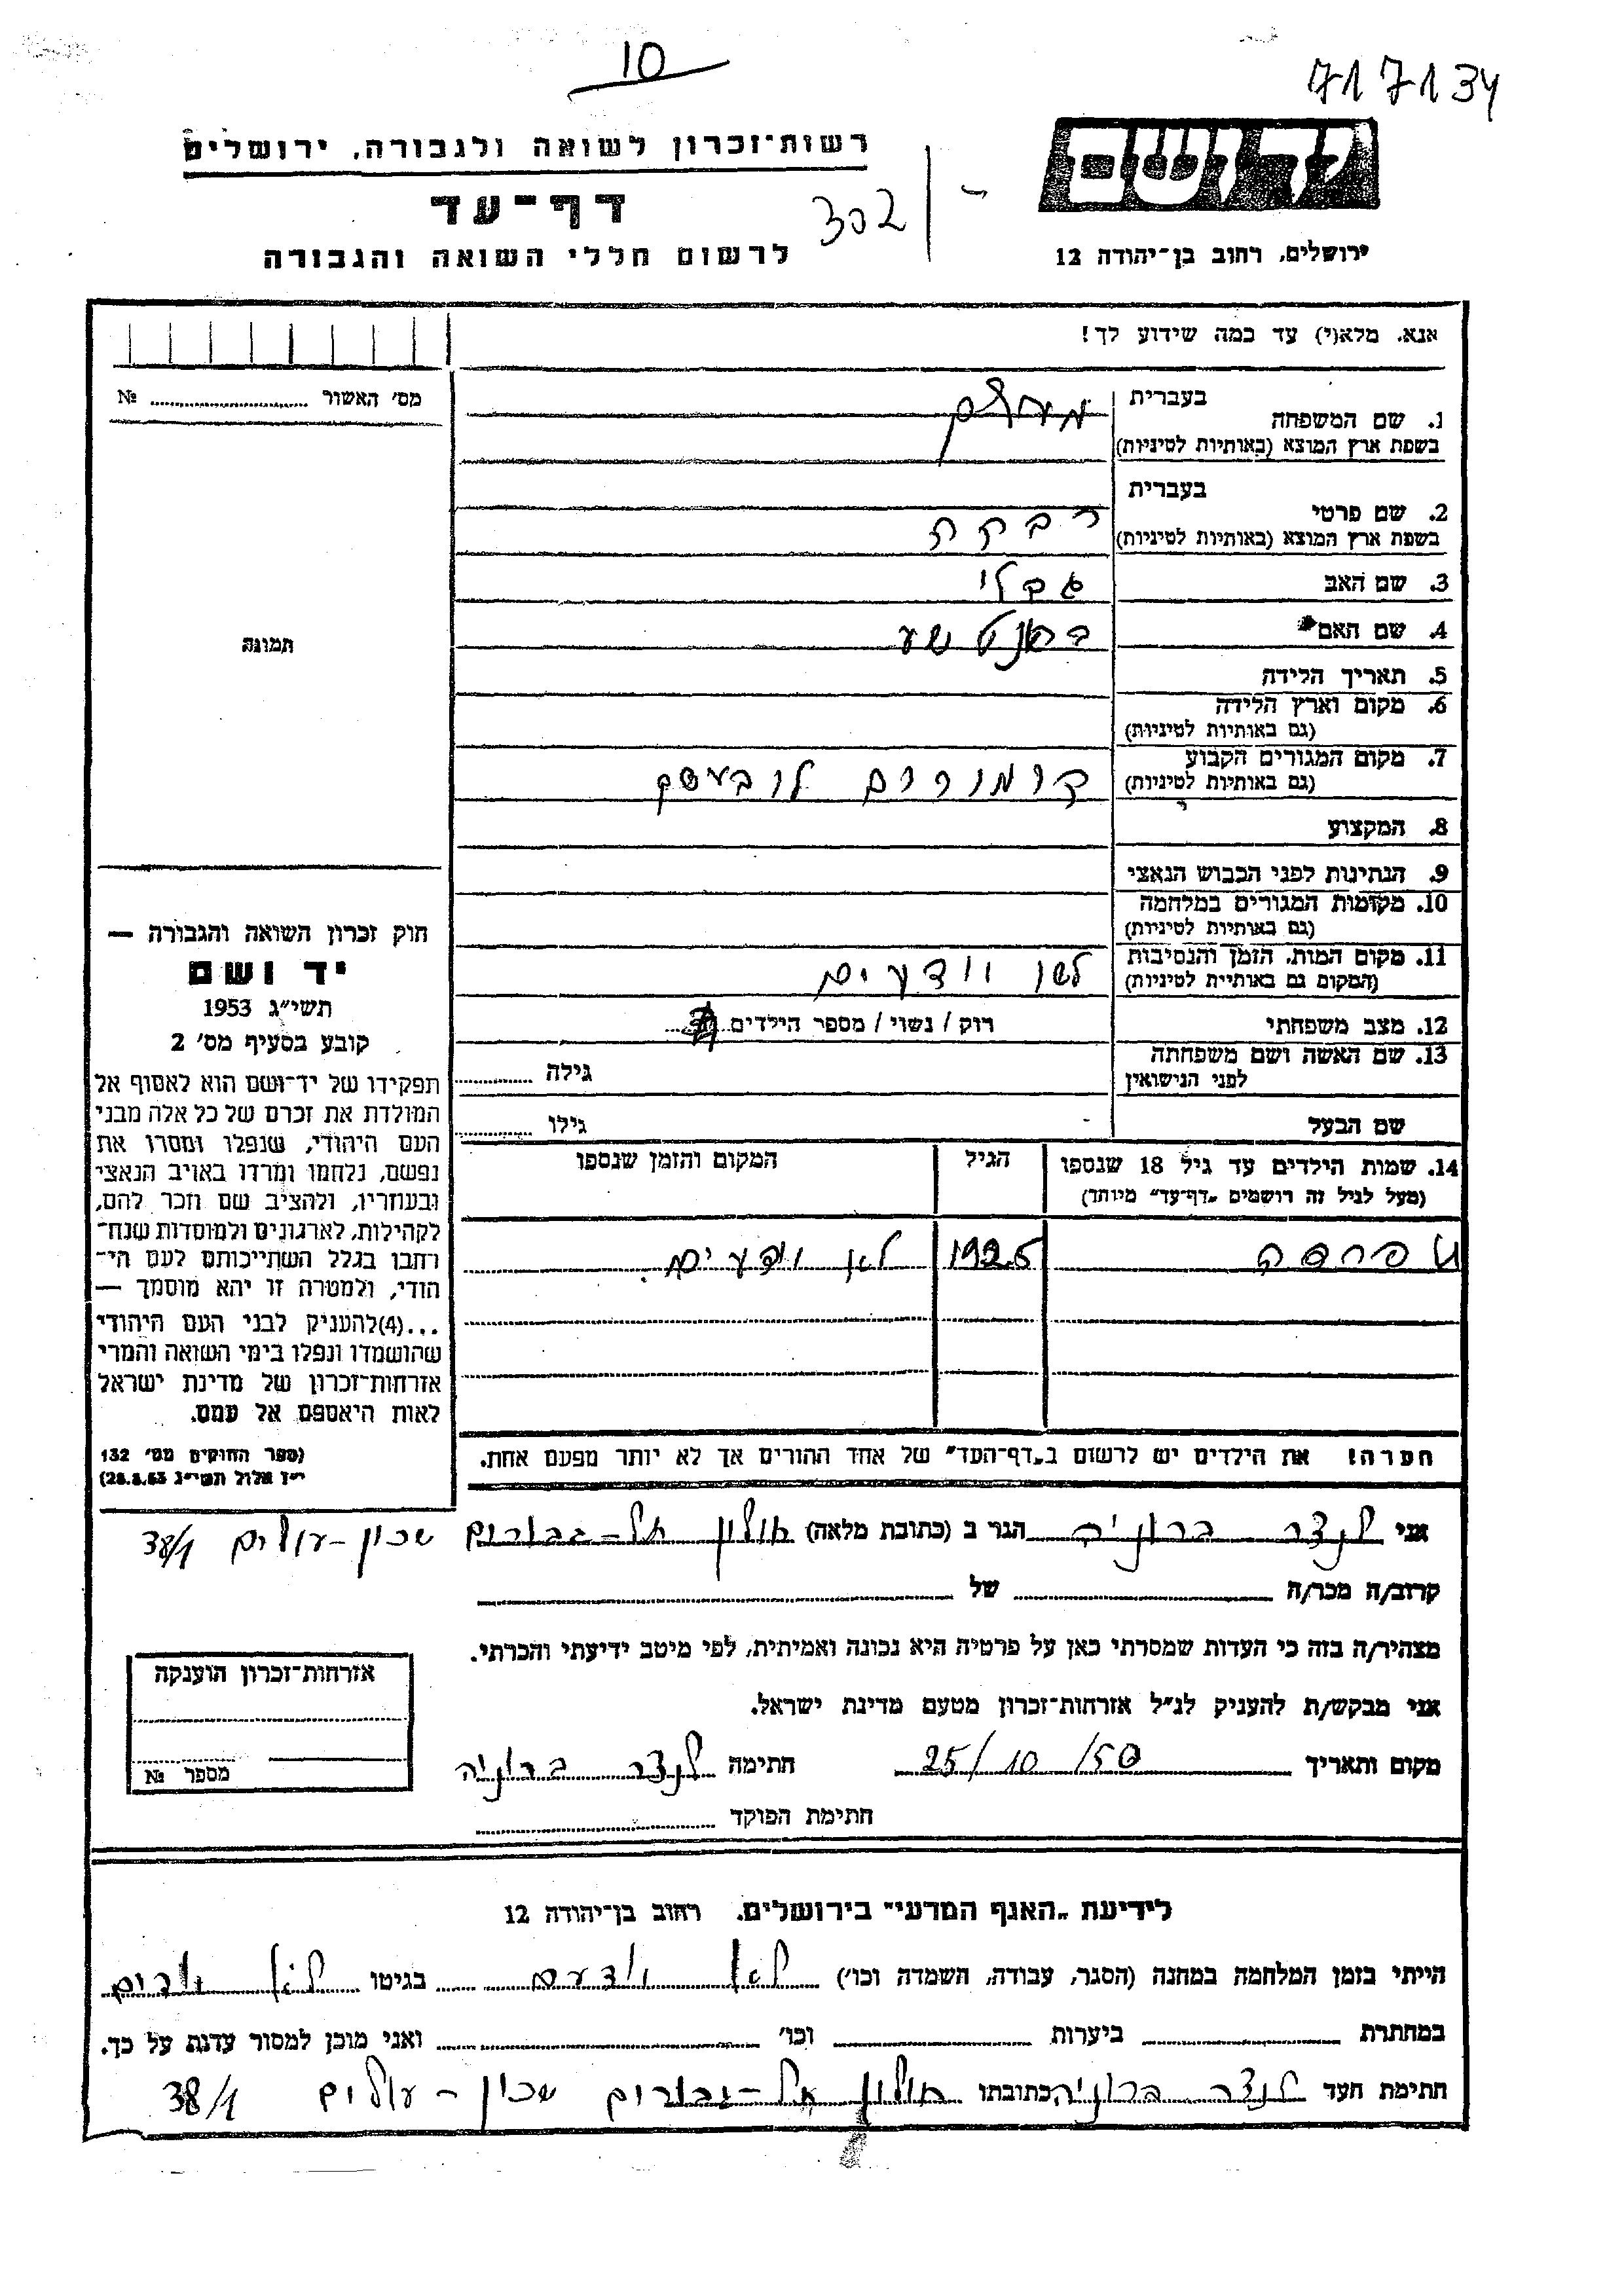 10
717134
רשות־זכרון לשואה ולגבורה, ירושלים
דף־עד
302/-
לרשום חללי השואה והגבורה
יד ושם
ירושלים, רחוב בן־יהודה 12
אנא, מלא(י) עד כמה שידוע לך!
מס' האשור № 
1. שם המשפחה בעברית
בשפת ארץ המוצא (באותיות לטיניות)
2. שם פרטי בעברית
בשפת ארץ המוצא (באותיות לטיניות) רבקה
3. שם האב
4. שם האם
5. תאריך הלידה
6. מקום וארץ הלידה
(גם באותיות לטיניות)
7. מקום המגורים הקבוע
(גם באותיות לטיניות)
8. המקצוע
9. הנתינות לפני הכבוש הנאצי
10. מקומות המגורים במלחמה
(גם באותיות לטיניות)
11. מקום המות, הזמן והנסיבות
(המקום גם באותיית לטיניות)
12. מצב משפחתי רוק / נשוי / מספר הילדים
13. שם האשה ושם משפחתה
לפני הנישואין גילה
שם הבעל גילו
14. שמות הילדים עד גיל 18 שנספו הגיל המקום והזמן שנספו
(מעל לגיל זה רושמים „דף־עד" מיוחד)
1925 לא יודעים.
הערה! את הילדים יש לרשום ב„דף־העד" של אחד ההורים אך לא יותר מפעם אחת.
תמונה
חוק זכרון השואה והגבורה —
יד ושם
תשי״ג 1953
קובע בסעיף מס' 2
תפקידו של יד־ושם הוא לאסוף אל
המולדת את זכרם של כל אלה מבני
העם היהודי, שנפלו ומסרו את
נפשם, נלחמו ומרדו באויב הנאצי
ובעוזריו, ולהציב שם וזכר להם,
לקהילות, לארגונים ולמוסדות שנח־
רחבו בגלל השתייכותם לעם הי־
הודי, ולמטרה זו יהא מוסמך —
...(4)להעניק לבני העם היהודי
שהושמדו ונפלו בימי השואה והמרי
אזרחות־זכרון של מדינת ישראל
לאות היאספם אל עמם.
(ספר החוקים מס' 132
י״ז אלול תשי״ג 28.8.53)
אני לנצר ברוניה הגר ב (כתובת מלאה) חולון תל-גבורים שכון-עולים 38/1
קרוב/ה מכר/ה של
מצהיר/ה בזה כי העדות שמסרתי כאן על פרטיה היא נכונה ואמיתית, לפי מיטב ידיעתי והכרתי.
אני מבקש/ת להעניק לנ״ל אזרחות־זכרון מטעם מדינת ישראל.
מקום ותאריך 25/10/50 חתימה לנצר ברוניה
חתימת הפוקד
אזרחות־זכרון הוענקה
מספר №
לידיעת „האגף המדעי" בירושלים. רחוב בן־יהודה 12
הייתי בזמן המלחמה במחנה (הסגר, עבודה, השמדה וכו') לא בגיטו לא
במחתרת ביערות וכו' ואני מוכן למסור עדות על כך.
חתימת העד לנצר ברוניה כתובתו חולון תל-גבורים שכון-עולים 38/1